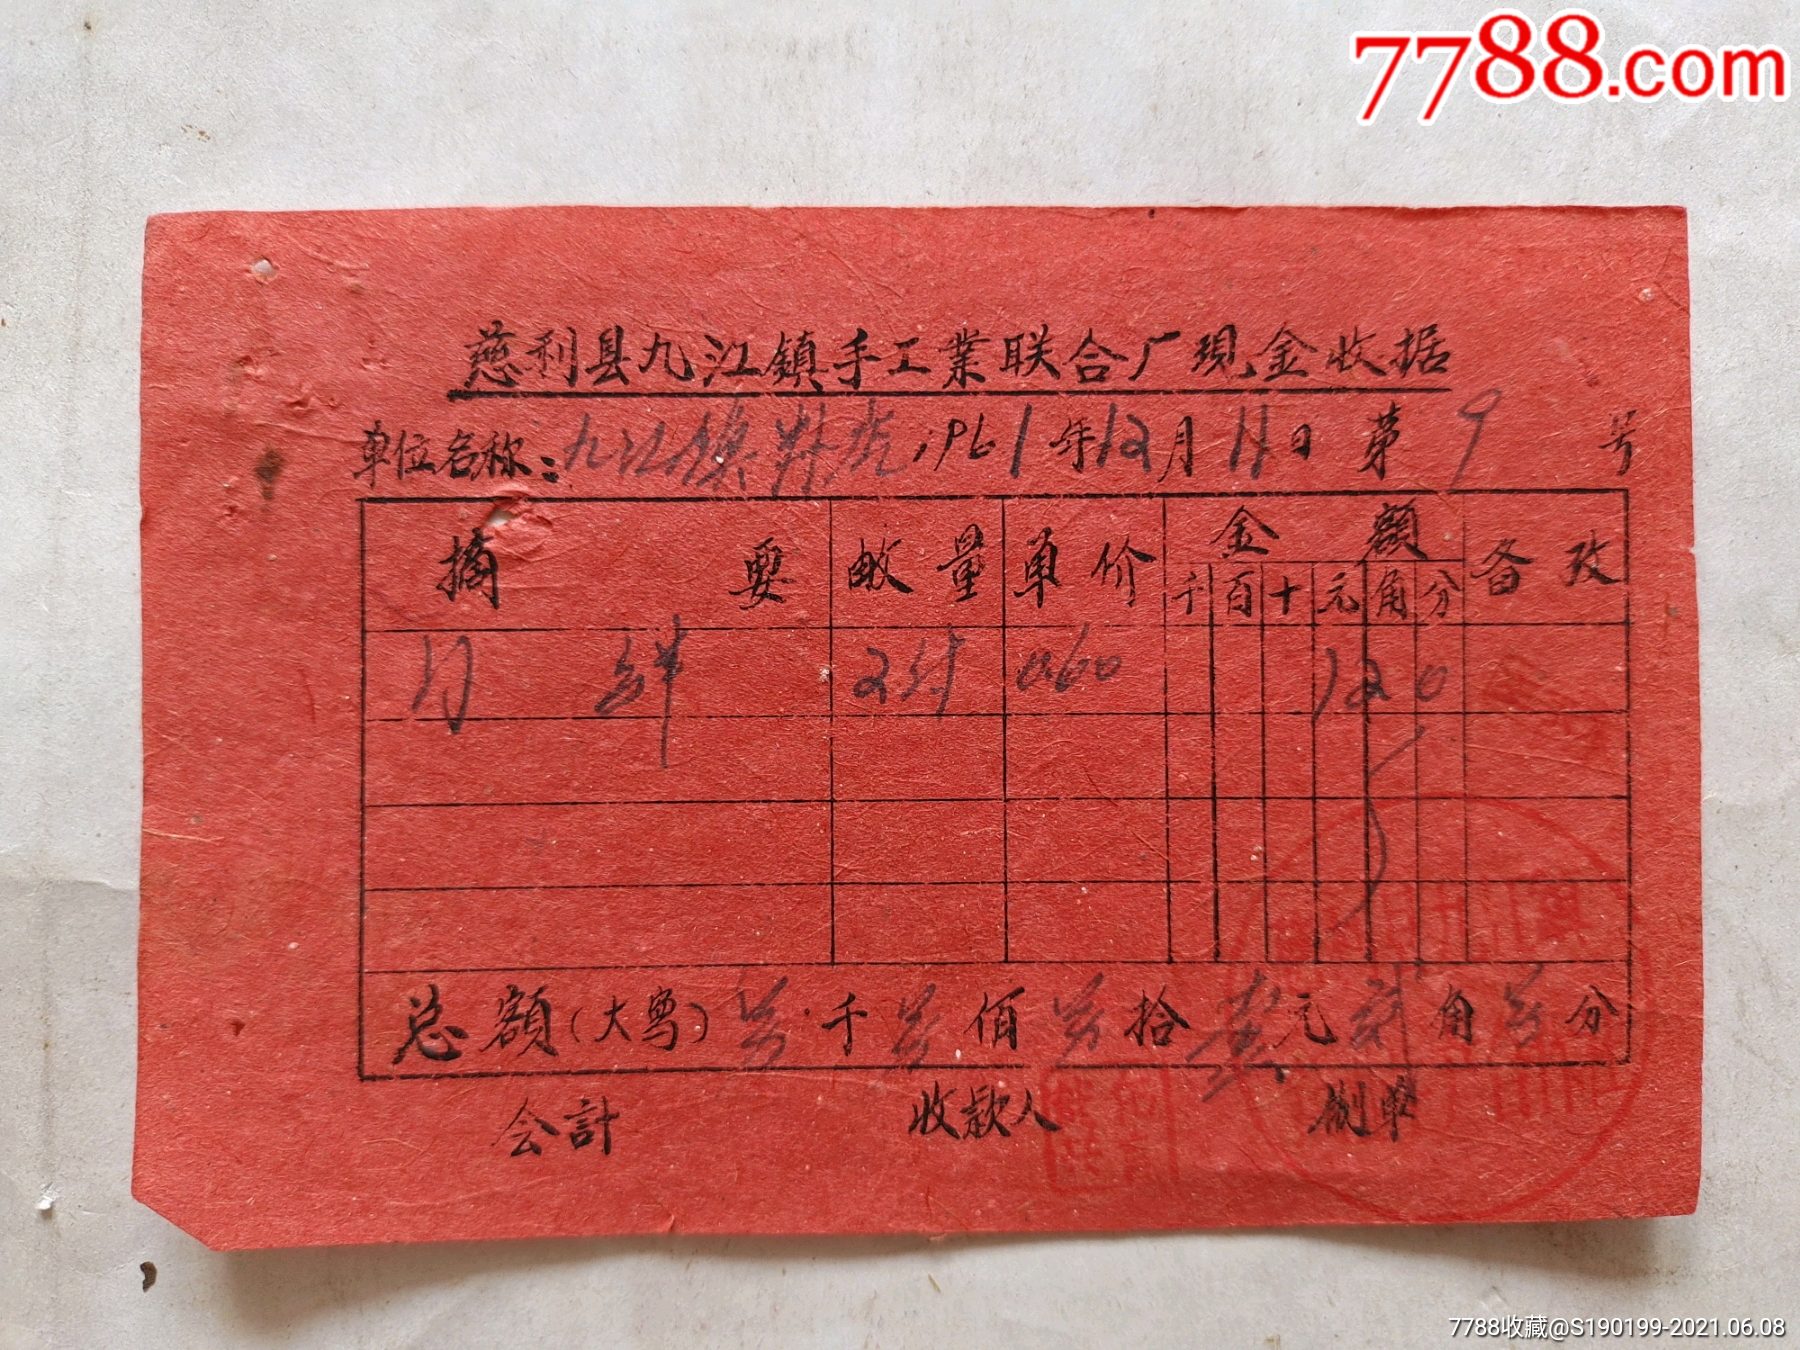 7788.com
慈利县九江镇手工業联合厂现金收据
单位名称:九江镇 1961年12月11日 第9号
摘要 数量 单价 金额 备攷
千 百 十 元 角 分
2付 0.60 1 2 0
总额(大写) 千 佰 拾 壹元 贰角 分
会計 收款人 制单
7788收藏@S190199-2021.06.08